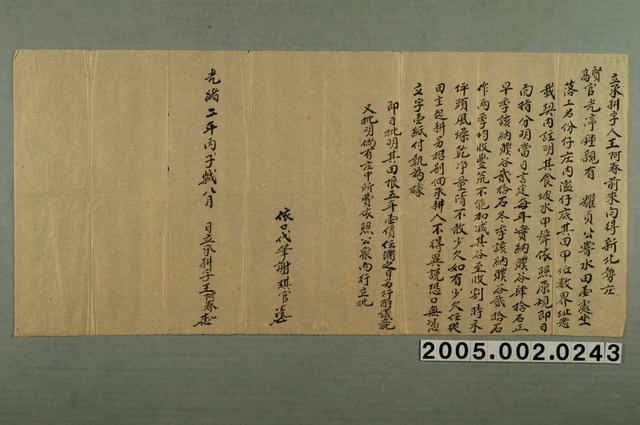 立承耕字人王阿春前來向得新北勢庄
賢官光渟鍾親有 耀貞公嘗水田壹處坐
落土名份仔庄內湳仔底其田甲位數界址悉
載契內註明其食坡水甲聲依照原規即日
南指分明當日言定每年實納濮谷肆拾石正
早季該納濮谷貳拾石冬季該納濮谷貳拾石
作兩季均收豐荒不能加減其谷至收割時禾
坪頭風燥乾淨量清不敢少欠如有少欠任從
田主起耕另招別佃承耕人不得異說恐口無憑
立字壹紙付執為據
即日批明其田限五年壹借任滿之日另行酌議批
又批明倘有庄中所費依照公眾而行立批
依口代筆謝琪官
光緒二年丙子歲八月 日立承耕字王阿春
2005.002.0243